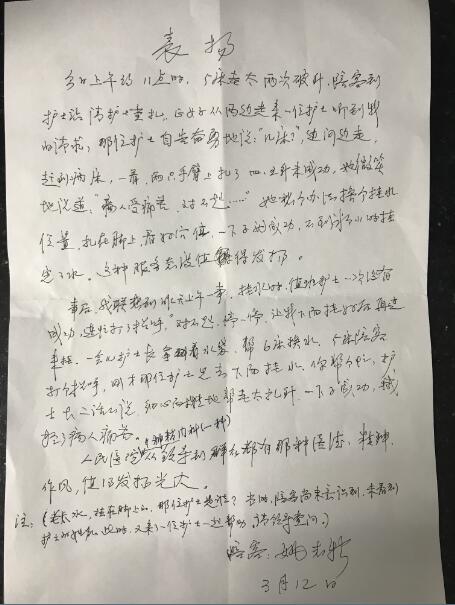 表扬
今日上午约11点时，5床老太两次破针，陪客到
护士站请护士重扎，正好从两边走来一位护士听到我
的请求，那位护士自告奋勇地说：“几床？”边问边走，
赶到病床，一看，两只手臂上扎了 未成功，她微笑
地说道：“病人受痛苦，对不起……”她想个办法换个挂水
位置，扎在脚上看好穴位，一下子就成功，不到 小时挂
完了水。这种服务态度值得发扬。
事后，我联想到 上午一事，挂水时，值班护士一次没有
成功，连忙打了招呼，“对不起，停一停，让我下面挂好后再过
来挂。一会儿护士长拿着水袋，帮6床换水，5床陪客
打个招呼，刚才那位护士是去下面挂水，你帮个忙，护
士长二话不说，细心 地帮老太扎针，一下子成功，减
轻了病人痛苦。（神经内科（一科）
人民医院从领导到群众都有那种医德、精神、
作风，值得发扬光大。
注：（老太水，挂在脚上的，那位护士是谁？当时，陪客尚未去认识到，未看到
护士的姓名，此时，又来了一位护士一起帮助，请领导查问。）
陪客：姚
3月12日